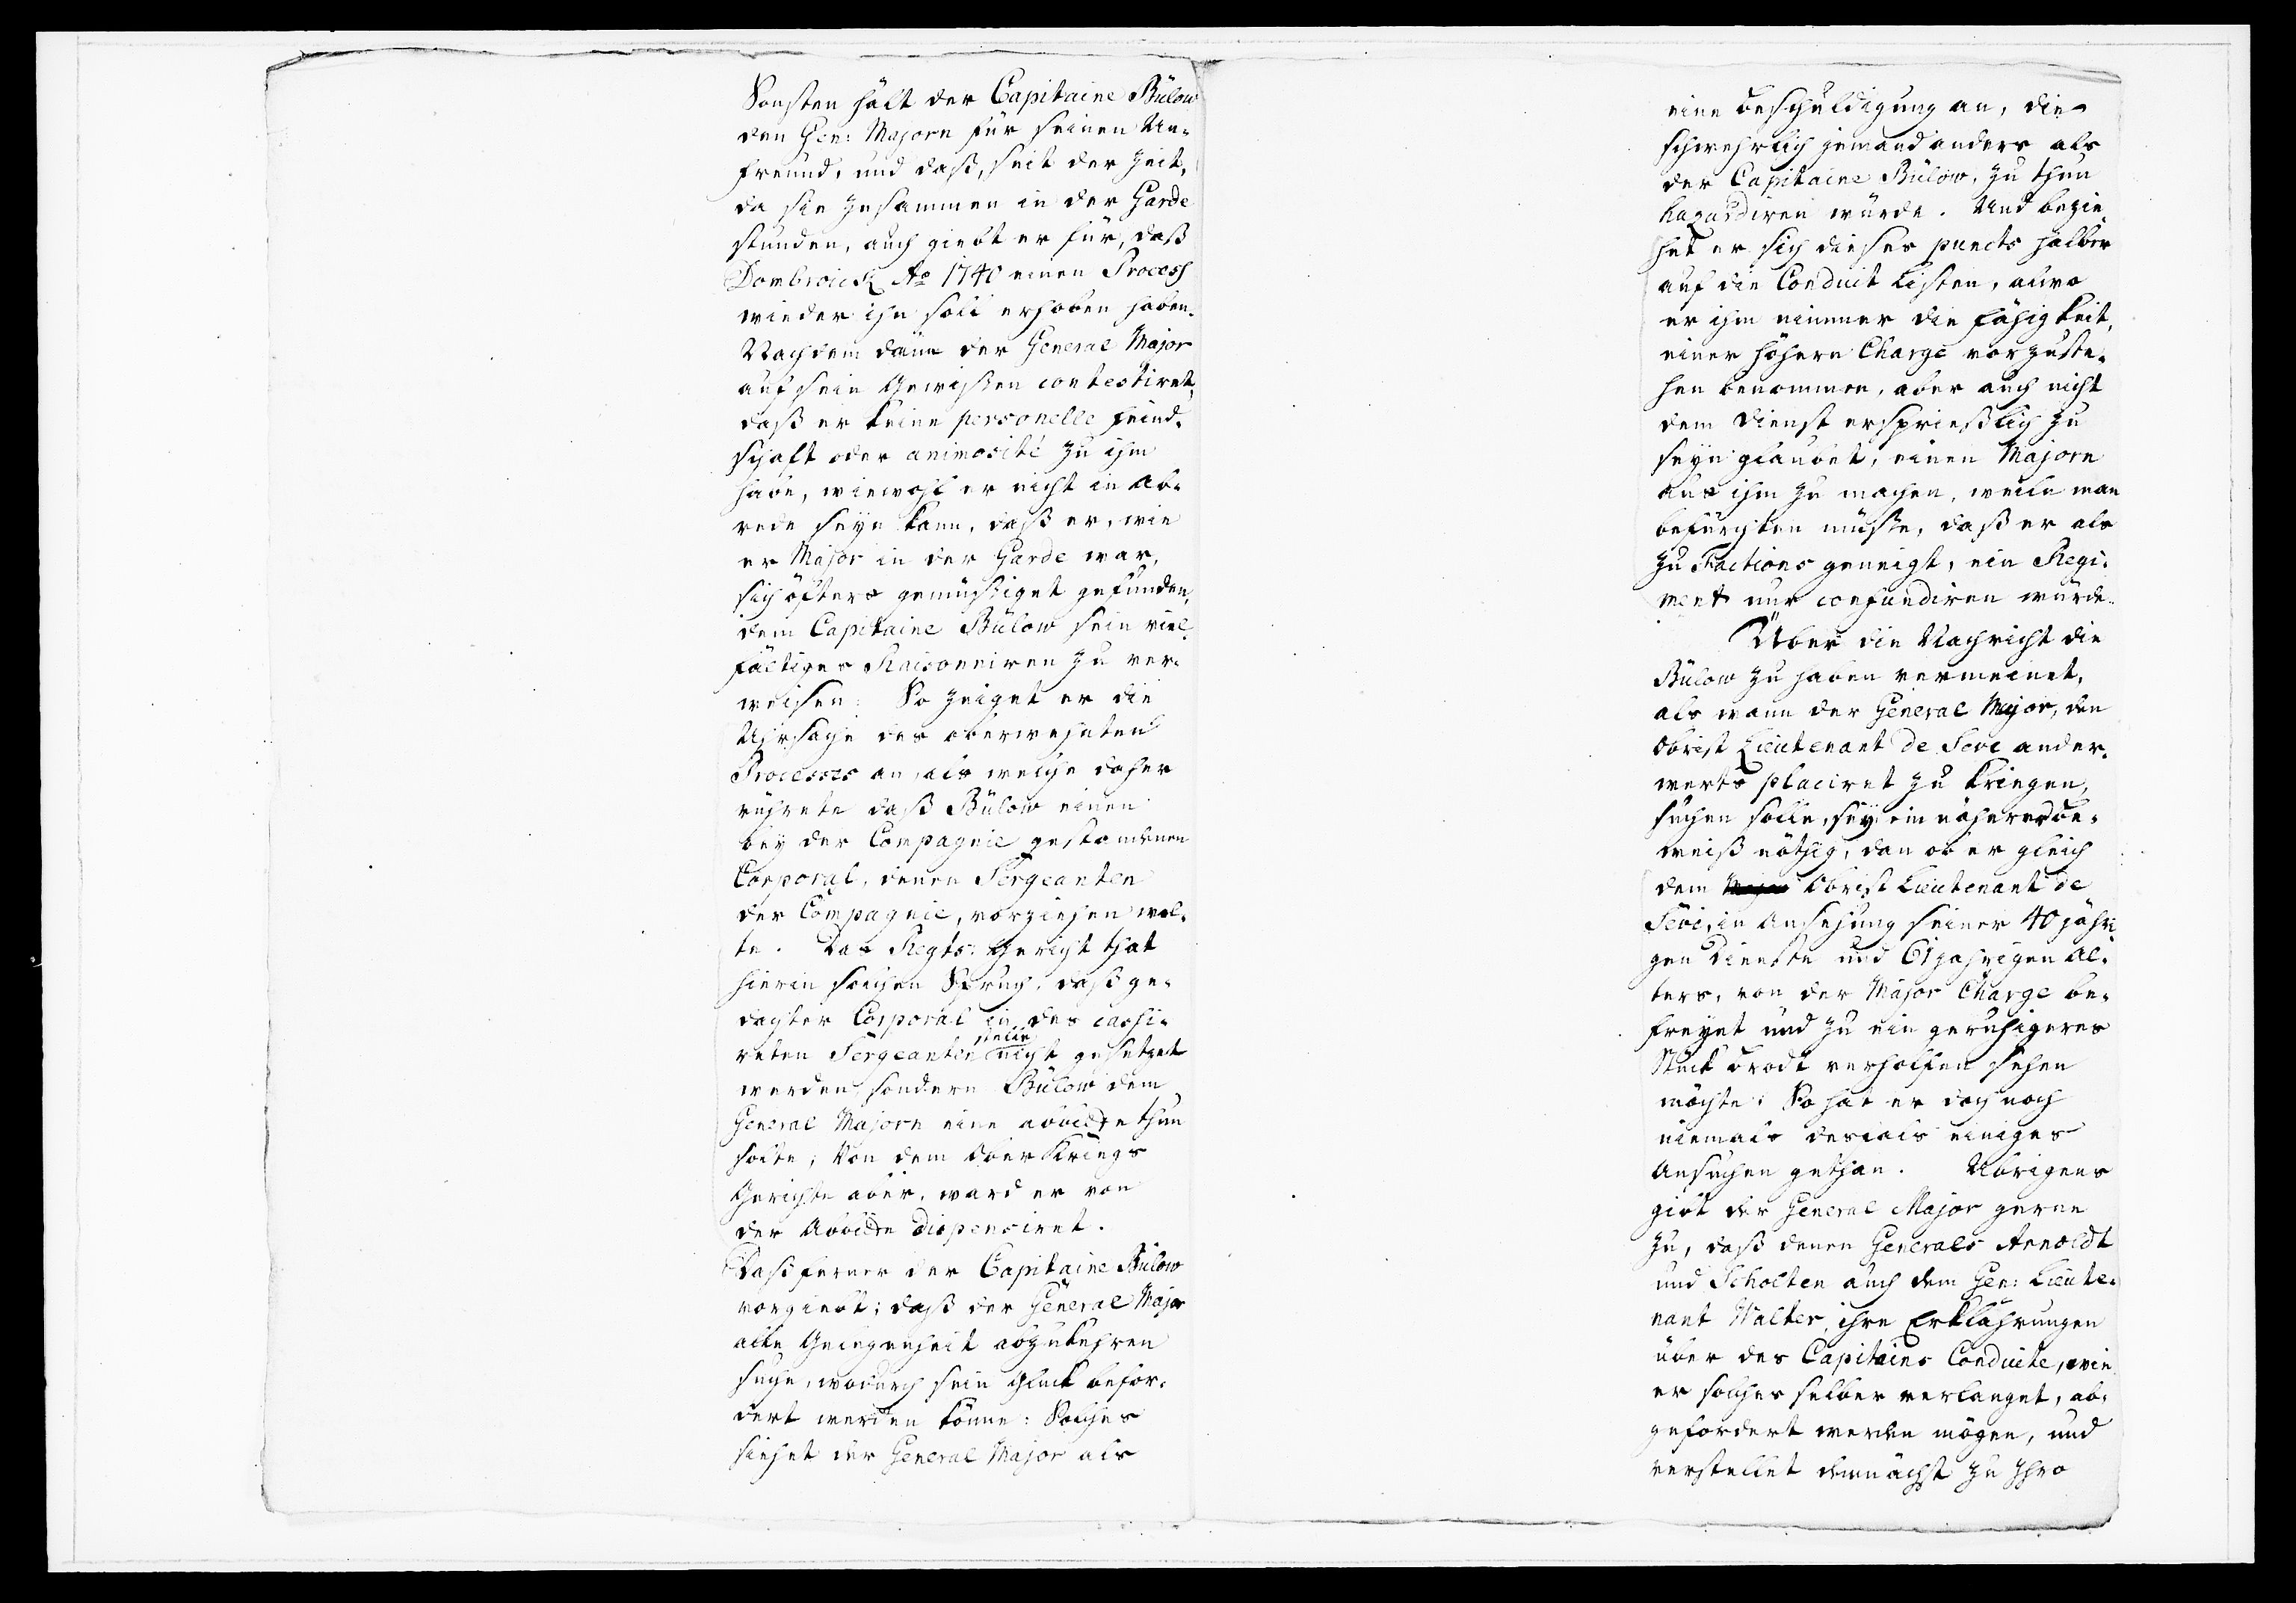 Sonsten hält der Capitaine Bülow
den Gen: Majorn für seinen Un-
freund, und daß, seit der Zeit,
da sie zusammen in der Garde
stunden, auch giebt er für, daß
Dombroick Ao 1740 einen Process
wieder ihn soll erhoben haben.
Nachdem dann der General Major
auf sein Gewißen contestiret,
daß er keine personelle Feind-
schaft oder animosité zu ihm
habe, wiewohl er nicht in Ab-
rede seyn kann, daß er, wie
er Major in der Garde war,
sich öfters gemüßiget gefunden,
dem Capitaine Bülow sein viel
fältiges Raisonniren zu ver-
weisen: So zeiget er die
Uhrsache des oberwehnten
Processes an, als welche daher
rührete daß Bülow einen
bey der Compagnie gestandenen
Corporal, denen Sergeanten
der Compagnie, vorziehen wol-
te. Das Regts: Gericht that
hierin solchen Spruch, daß ge-
dachter Corporal in des cassi-
reten Sergeanten stelle nicht gesetzet
werden, sondern Bülow dem
General Majorn eine abbitte thun
solte; Von dem Ober Kriegs
Gerichte aber, ward er von
der Abbitte dispensiret.
Daß ferner der Capitaine Bülow
vorgiebt; daß der General Major
alle Gelegenheit abzukehren
suche, wodurch sein Glück beför-
dert werden könne: Solches
siehet der General Major als
eine Beschuldigung an, die
schwehrlich jemand anders als
der Capitaine Bülow, zu thun
hazardiren würde. Und bezie-
het er sich dieses puncts halber
auf die Conduit Listen, allwo
er ihm nimmer die Fähigkeit,
einer höhern Charge vorzuste-
hen benommen, aber auch nicht
dem Dienst ersprießlich zu
seyn glaubet, einen Majorn
aus ihm zu machen, weile man
befürchten müste, daß er als
zu Factions geneigt, ein Regi-
ment nur confundiren würde.
Über die Nachricht die
Bülow zu haben vermeinet,
als wann der General Major, den
Obrist Lieutenant de Seve ander-
werts placiret zu kriegen,
suchen solle, sey ein näherer Be-
weiß nöthig, dan ob er gleich
dem Obrist Lieutenant de
Seve, in Ansehung seiner 40 jähri-
gen Dienste und 61 jahrigen Al-
ters, von der Major Charge be-
freyet und zu ein geruhigeres
Stück Brodt verholfen sehen
möchte; So hat er doch noch
niemals desfals einiges
Ansuchen gethan. Übrigens
gibt der General Major gerne
zu, daß denen Generals Arnoldt
und Scholten auch dem Gen: Lieute-
nant Walter, ihre Erklährungen
über des Capitains Conduite, wie
er solches selber verlanget, ab-
gefordert werden mögen, und
verstellet demnächst zu Ihro